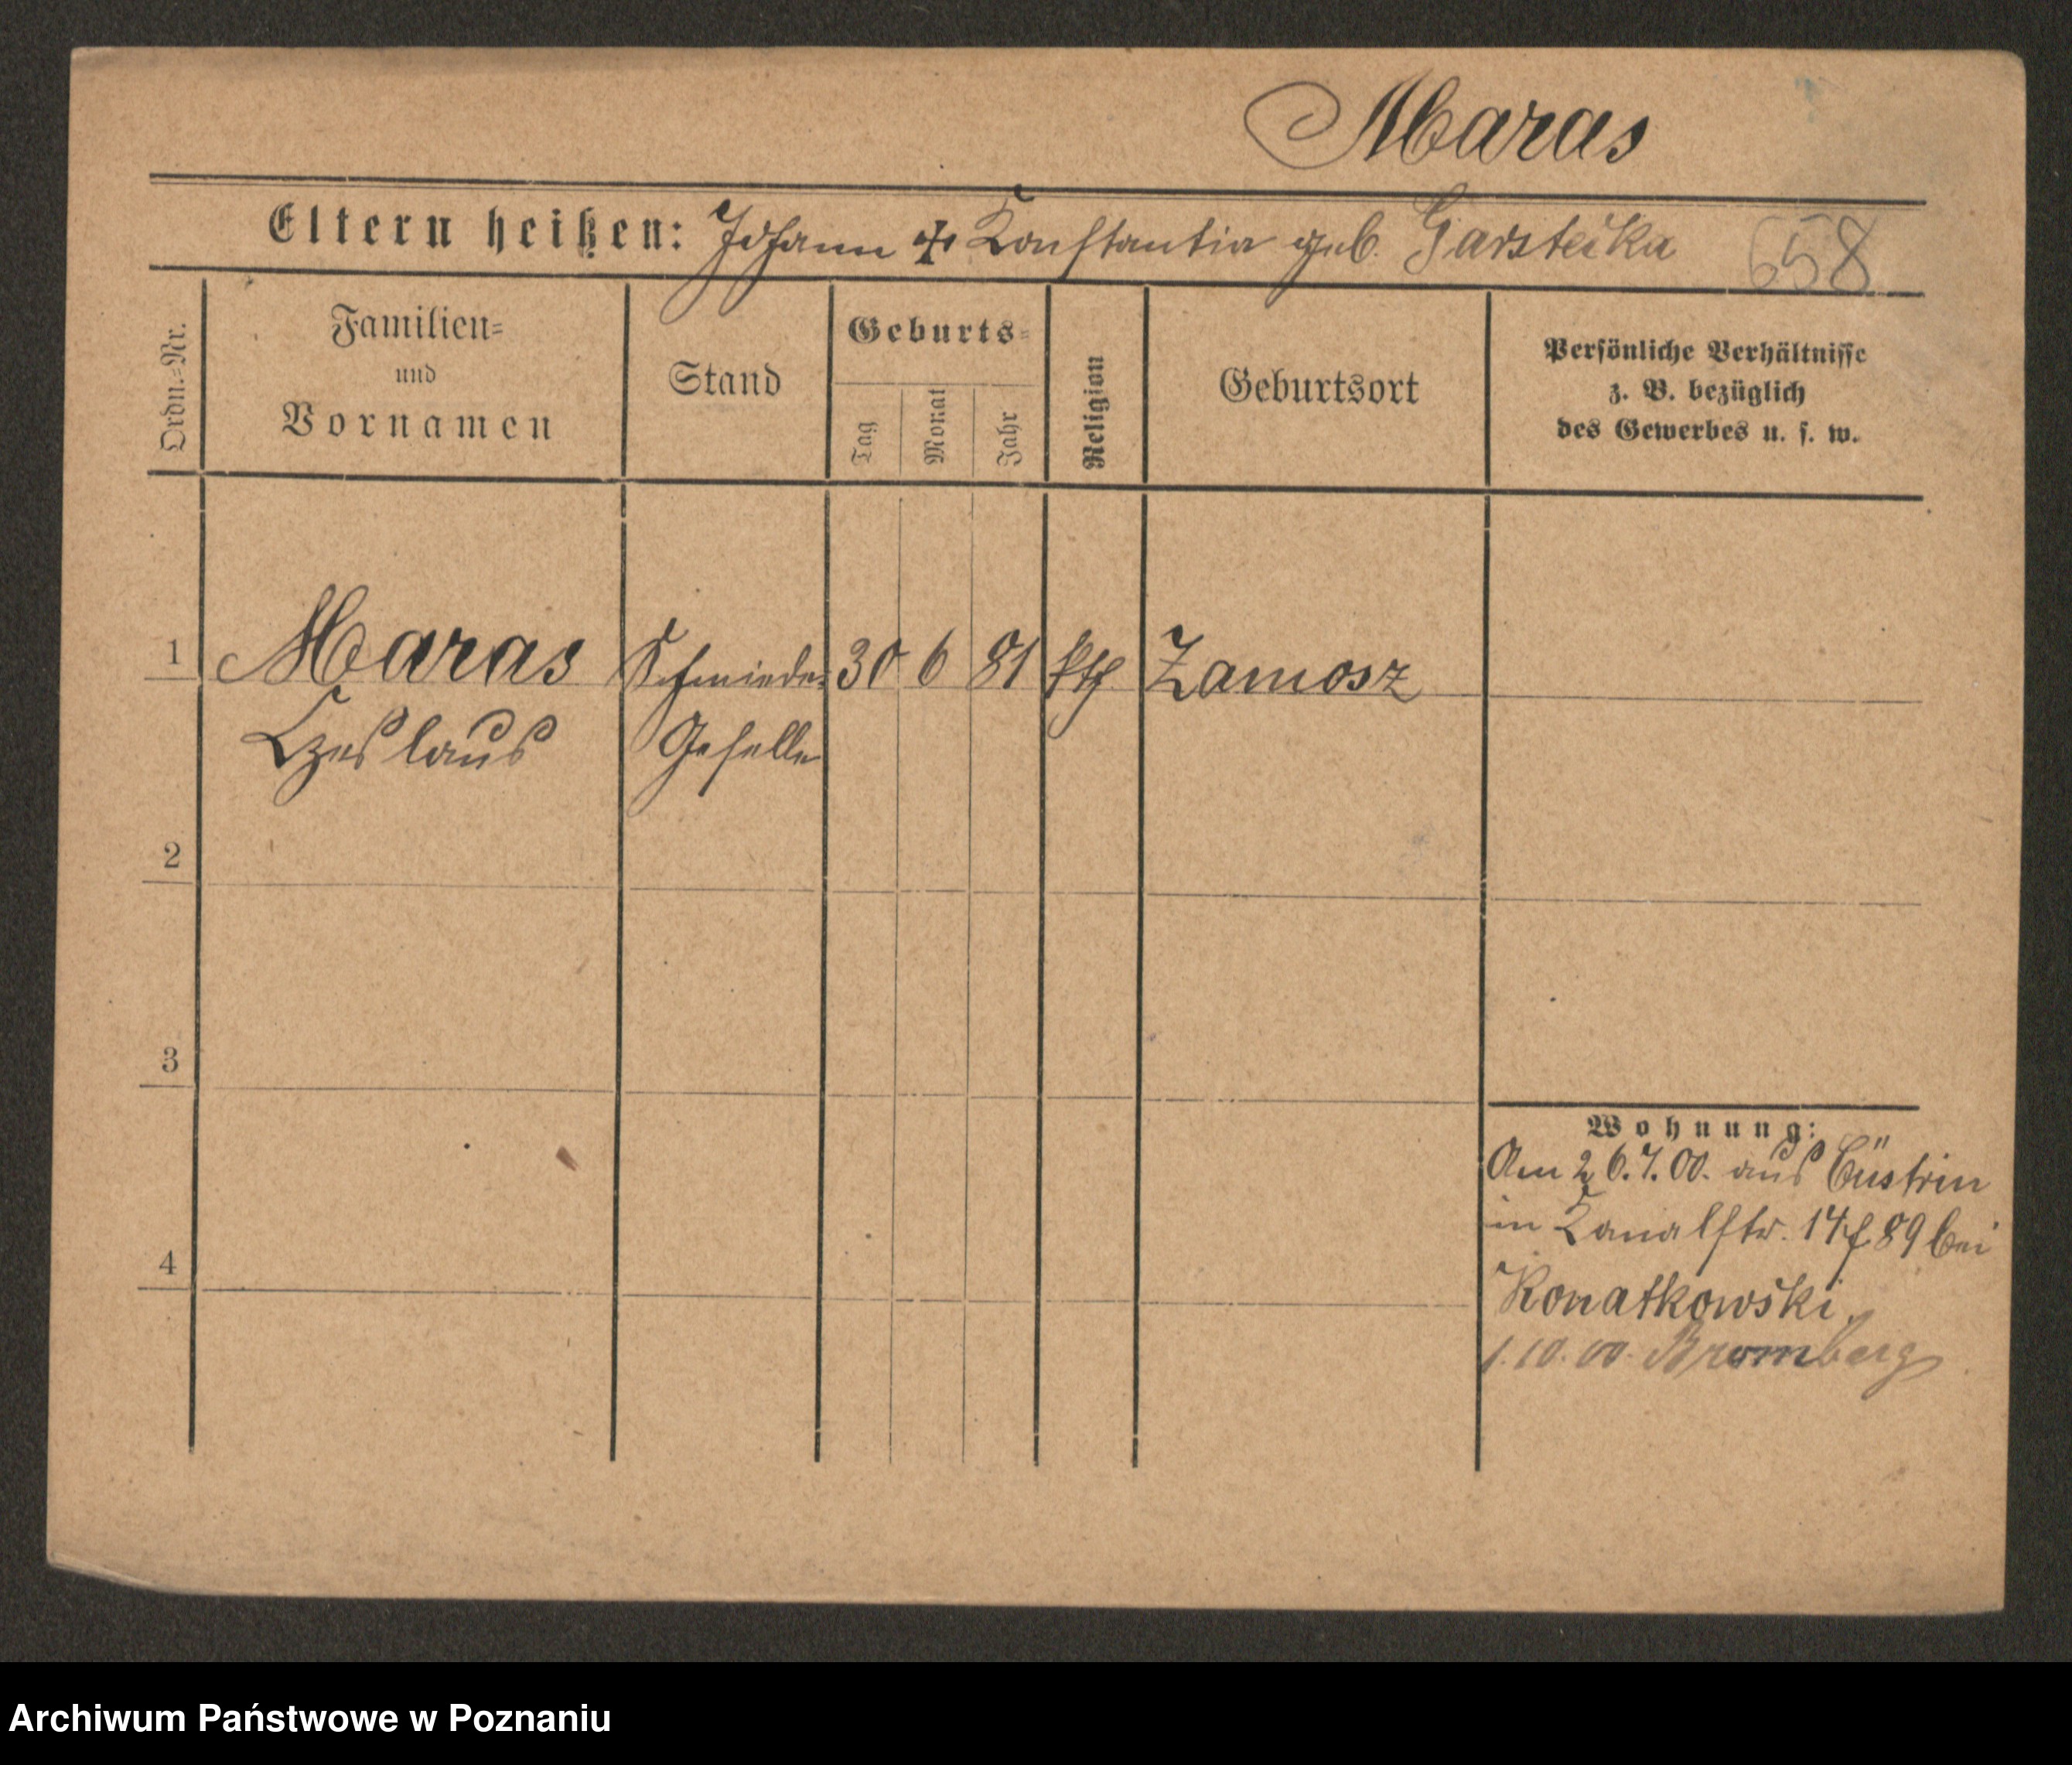 Maras
Eltern heißen: Johann + Konstantia geb. Garstecka
658
Ordn.-Nr.
Familien-
und
Vornamen
Stand
Geburts-
Tag
Monat
Jahr
Religion
Geburtsort
Persönliche Verhältnisse
z. B. bezüglich
des Gewerbes u. s. w.
1 Maras Schmiede- 30 6 81 kth Zamosz
Czeslaus Geselle
2
3
4
Wohnung:
Am 26.7.00. aus Cüstrin
in Kanalstr. 17 f 89 bei
Konatkowski.
1.10.00. Bromberg
Archiwum Państwowe w Poznaniu